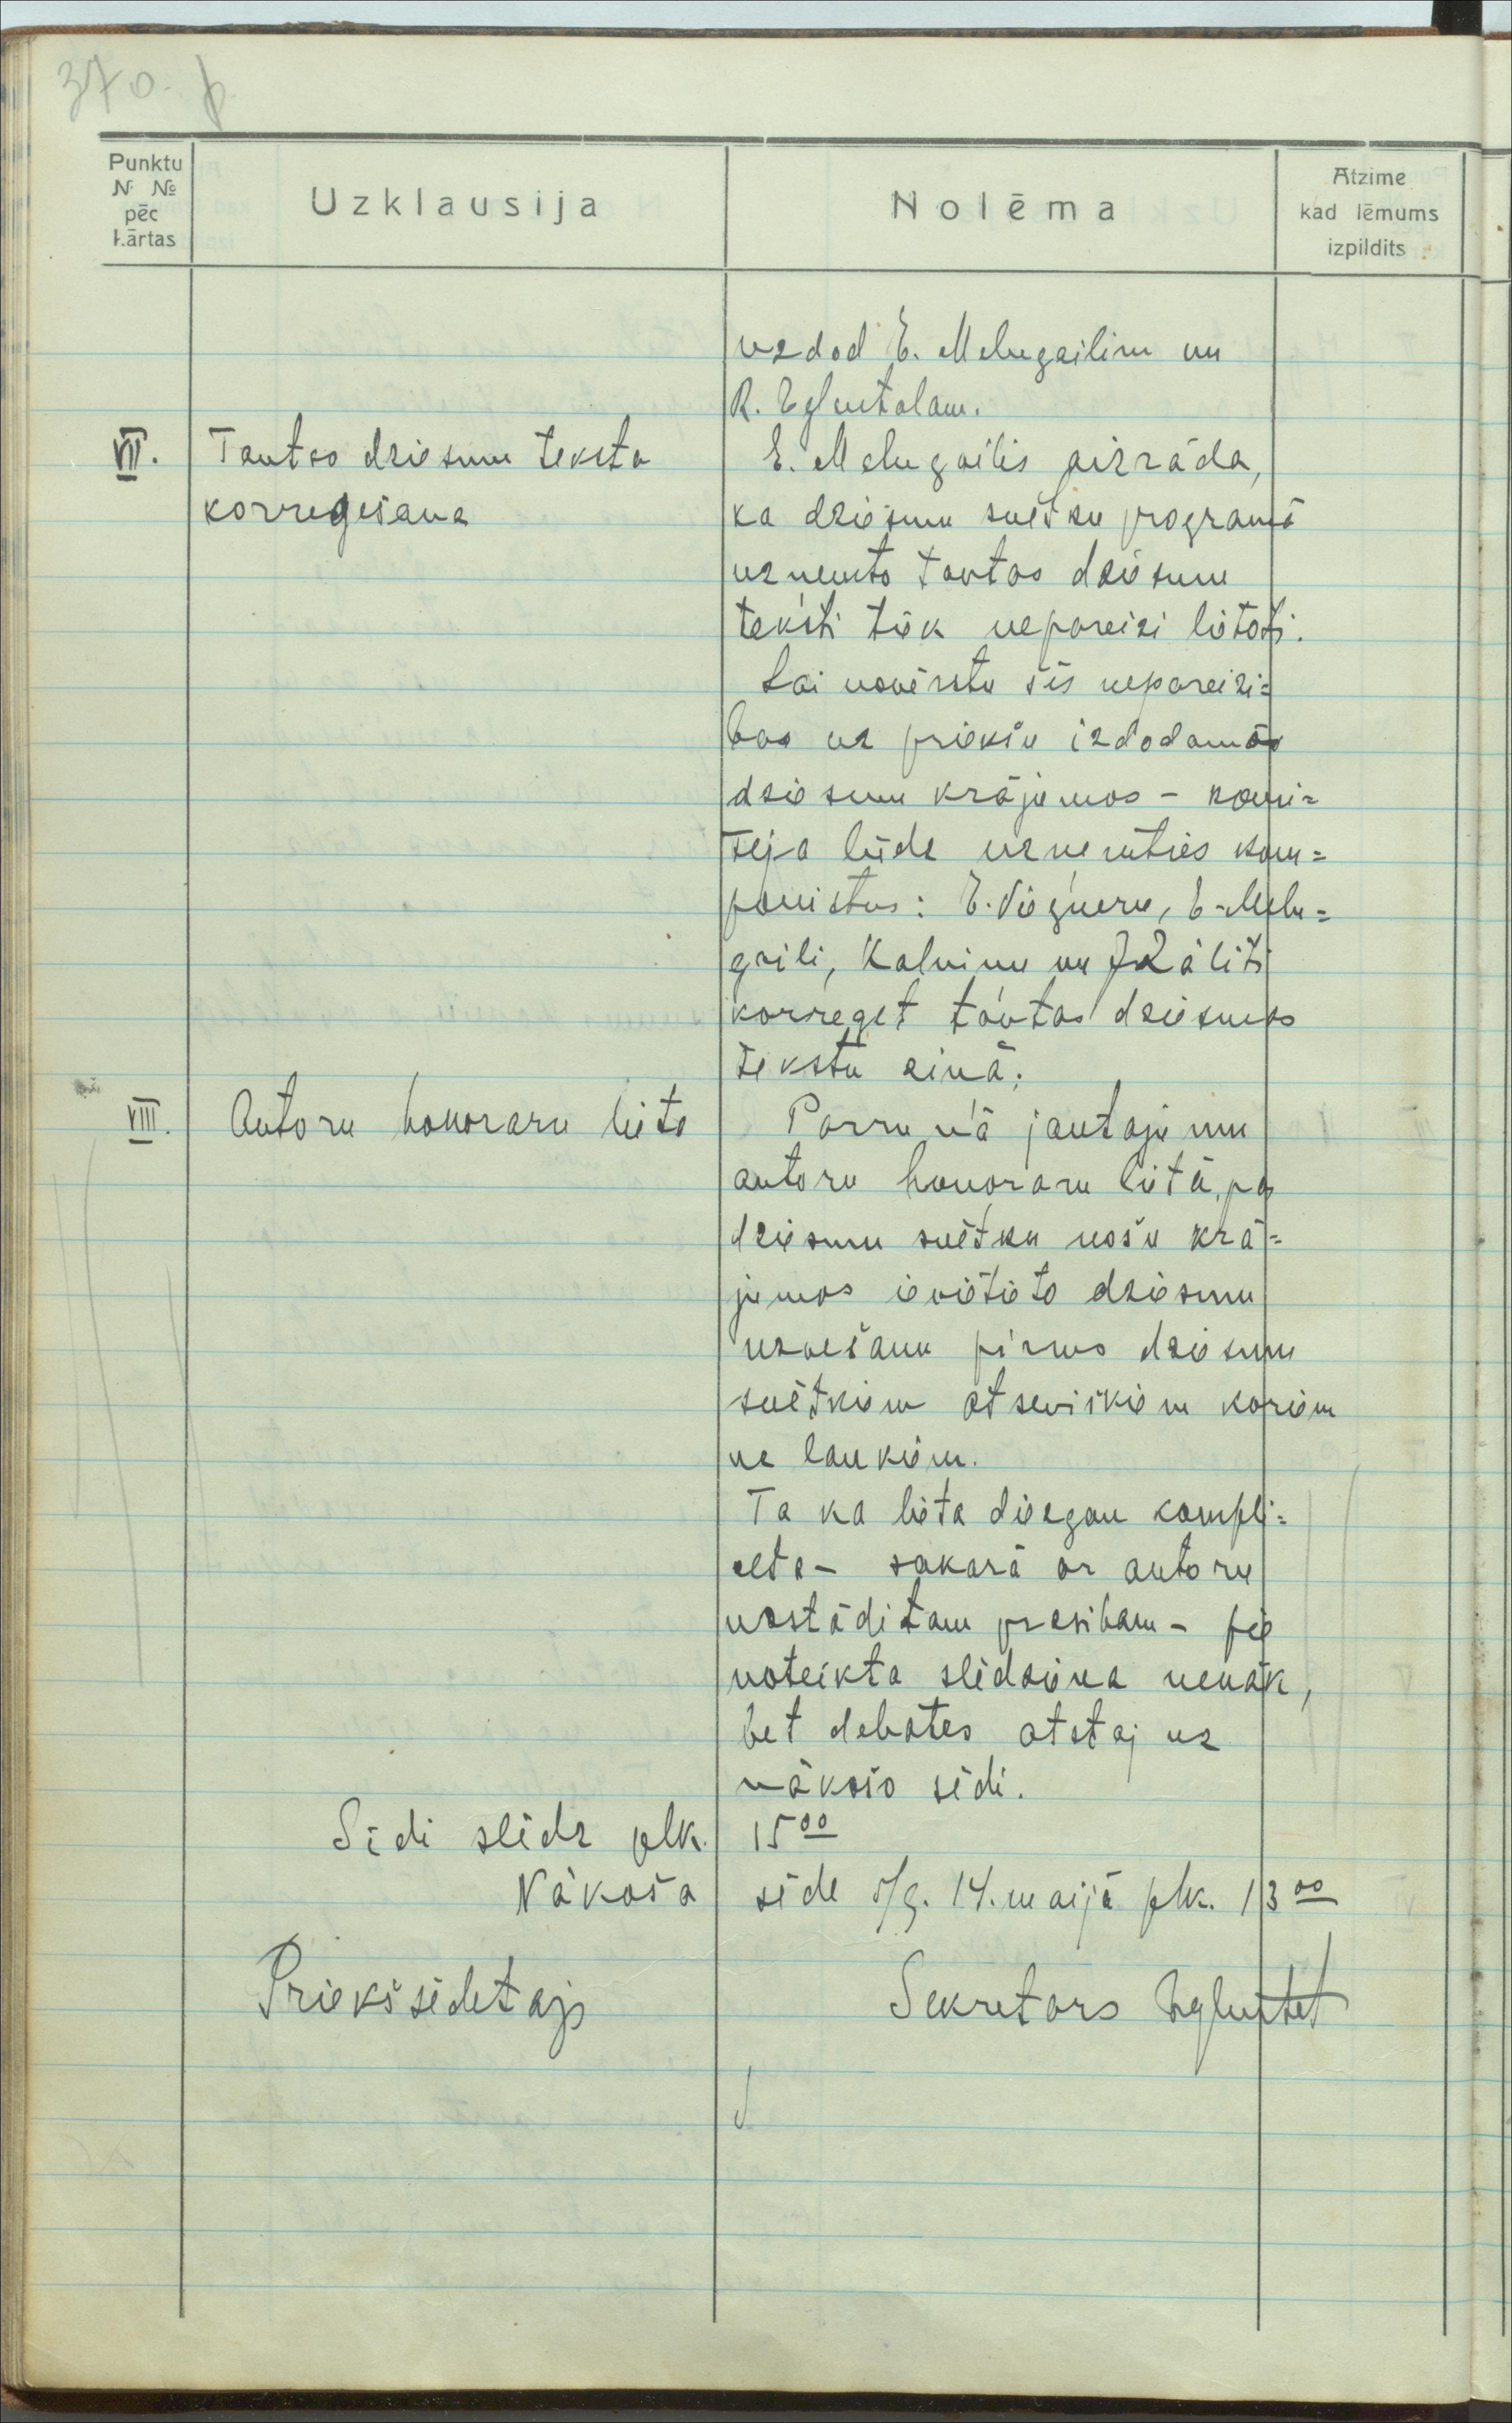 370. p
Punktu
N. №
pēc
kārtas
Uzklausija
Nolēma
Atzime
kad lēmums
izpildits
uzdod E. Melngailim un
R. Eglentalam.
VII.
Tautas dziesmu teksta
korregešana
E. Melngailis aizrāda,
ka dziesmu svētku programā
uzņemto tautas dziesmu
teksti tiek nepareizi lietoti.
Lai novērstu šīs nepareizi=
bas uz priekšu izdodamās
dziesmu krājumos – komi=
teja lūdz uzņemties kom=
ponistus: E. Vigneru, E. Meln=
gaili, Kalninu un J Zāliti
korreget tautas dziesmas
tekstu ziņā.
VIII.
Autoru honoraru lieta
Parrunā jautajumu
autoru honoraru lietā, par
dziesmu svētku nošu krā=
jumos ievietoto dziesmu
uzvešanu pirms dziesmu
svētkiem atsevišķiem koriem
uz laukiem.
Ta ka lieta diezgan kompli=
cēta – sakarā ar autoru
uzstāditam prasibam – pie
noteikta slēdziena nenāk,
bet debates atstaj uz
nākošo sēdi.
Sēdi slēdz plk. 15 00
Nākoša sēde š/g. 14. maijā plk. 13 00
Priekšsēdetajs
Sekretars